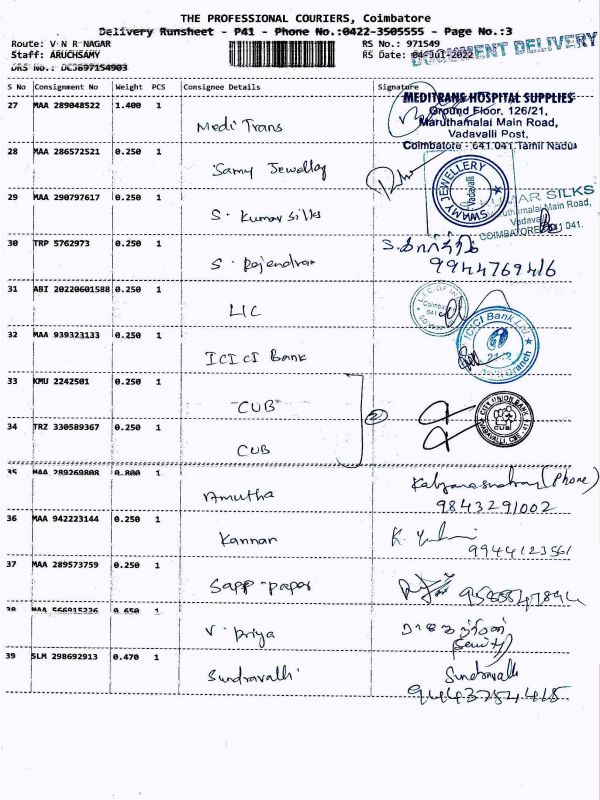 THE PROFESSIONAL COURIERS, Coimbatore
Delivery Runsheet - P41 - Phone No.:0422-3505555 - Page No.:3
Route: V N R NAGAR RS No.: 971549
Staff: ARUCHSAMY RS Date: 04-Jul-2022
DRS No.: DCJB97154903
DOCUMENT DELIVERY
S No Consignment No Weight PCS Consignee Details Signature
27 MAA 289048522 1.400 1 Medi Trans
MEDITRANS HOSPITAL SUPPLIES
Ground Floor, 126/21,
Maruthamalai Main Road,
Vadavalli Post,
Coimbatore - 641 041. Tamil Nadu
28 MAA 286572521 0.250 1 Samy Jewellay
SWAMY JEWELLERY
Vadavalli
29 MAA 290797617 0.250 1 S. Kumar silks
SILKS
Main Road,
Vadavalli
COIMBATORE 041.
30 TRP 5762973 0.250 1 S. Rajendran
9944769416
31 ABI 20220601588 0.250 1 LIC
32 MAA 939323133 0.250 1 ICICI Bank
ICICI Bank Ltd
Branch
33 KMU 2242501 0.250 1 CUB
2
CITY UNION BANK
CUB
34 TRZ 330589367 0.250 1 CUB
35 MAA 289269808 0.800 1 Amutha
(Phone)
9843291002
36 MAA 942223144 0.250 1 Kannan
9944123561
37 MAA 289573759 0.250 1 Sapp - paper
38 MAA 566915226 0.650 1 V. Priya
39 SLM 298692913 0.470 1 Sundravalli
Sundravalli